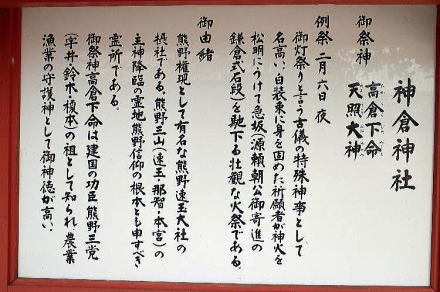 神倉神社
御祭神
高倉下命
天照大神
例祭二月六日夜
御灯祭りと言う古儀の特殊神事として
名高い、白装束に身を固めた祈願者が神火を
松明にうけて急坂(源頼朝公御寄進の
鎌倉式石段)を馳下る壮観な火祭である。
御由緒
熊野権現として有名な熊野速玉大社の
摂社である。熊野三山(速玉・那智・本宮)の
主神降臨の霊地熊野信仰の根本とも申すべき
霊所である。
御祭神高倉下命は建国の功臣熊野三党
(宇井鈴木榎本)の祖として知られ、農業
漁業の守護神として御神徳が高い、